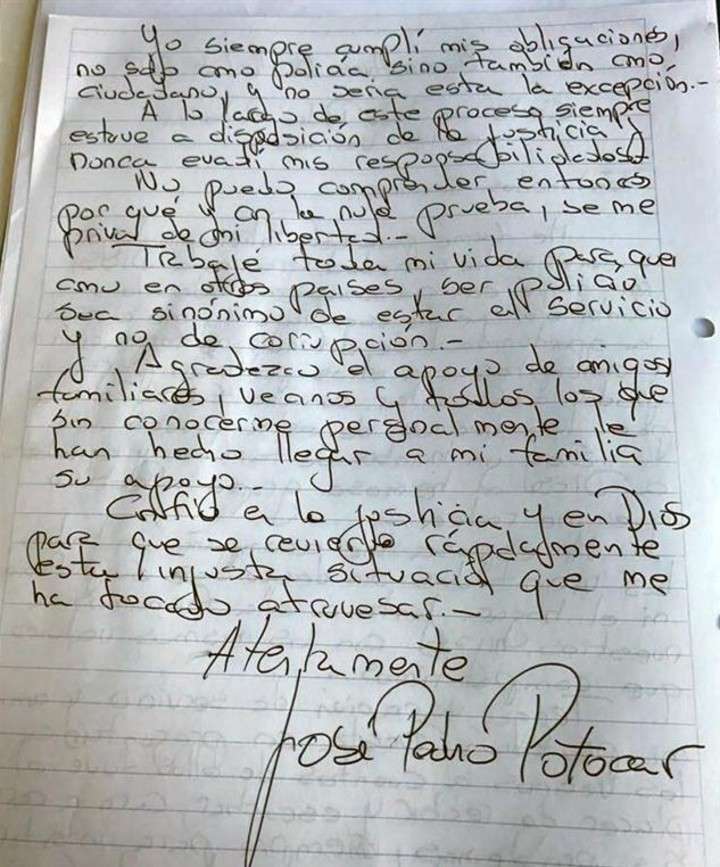 Yo siempre cumplí mis obligaciones,
no sólo como policía sino también como
ciudadano, y no sería esta la excepción.-
A lo largo de este proceso siempre
estuve a disposición de la justicia y
nunca evadí mis responsabilidades.
No puedo comprender entonces
por qué y con la nula prueba, se me
priva de mi libertad.-
Trabajé toda mi vida para que
como en otros países, ser policía
sea sinónimo de estar al servicio
y no de corrupción.-
Agradezco el apoyo de amigos,
familiares, vecinos y todos los que
sin conocerme personalmente le
han hecho llegar a mi familia
su apoyo.-
Confío en la justicia y en Dios
para que se revierta rápidamente
esta injusta situación que me
ha tocado atravesar.-
Atentamente
José Pedro Potocar